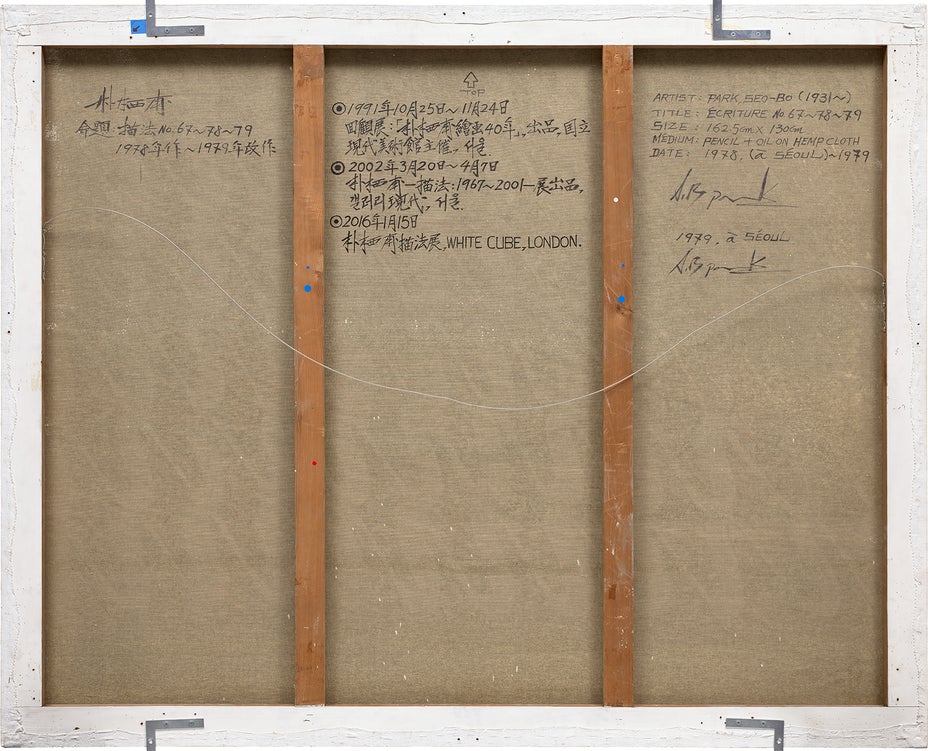 朴栖甫
命題:描法No.67~78~79
1978年作~1979年改作
TOP
◉1991年10月25日~11月24日
回顧展:「朴栖甫繪画40年」,出品,国立
現代美術館主催, 서울.
◉2002年3月20日~4月7日
朴栖甫—描法:1967~2001—展出品,
갤러리現代, 서울.
◉2016年1月15日
朴栖甫描法展,WHITE CUBE,LONDON.
ARTIST: PARK, SEO-BO (1931~)
TITLE: ECRITURE No.67~78~79
SIZE: 162.5cm x 130cm
MEDIUM: PENCIL + OIL ON HEMP CLOTH
DATE: 1978, (à SÉOUL)~1979
S.B park
1979, à SÉOUL
S.B park